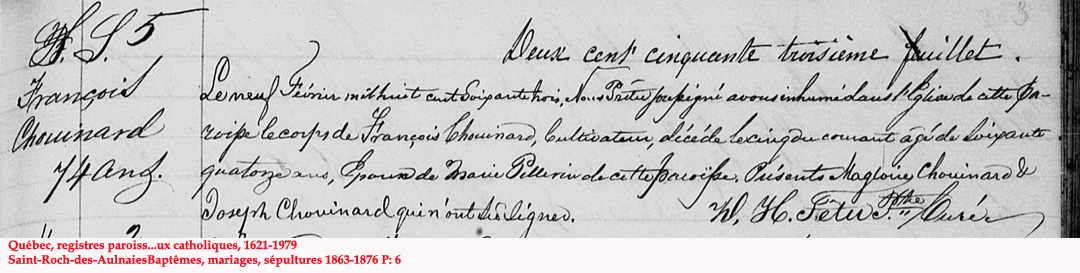 S. 5
François
Chouinard
74 ans.
Deux cent cinquante troisième feuillet.
Le neuf Février mil huit cent soixante trois, Nous Prêtre soussigné avons inhumé dans l'Eglise de cette Pa-
roisse le corps de François Chouinard, Cultivateur, décédé le cinq du courant agé de soixante
quatorze ans, Epoux de Marie Pellerin de cette paroisse. Présents Magloire Chouinard &
Joseph Chouinard qui n'ont su signer. D. H. Têtu Ptre Curé
Québec, registres paroiss...ux catholiques, 1621-1979
Saint-Roch-des-AulnaiesBaptêmes, mariages, sépultures 1863-1876 P: 6